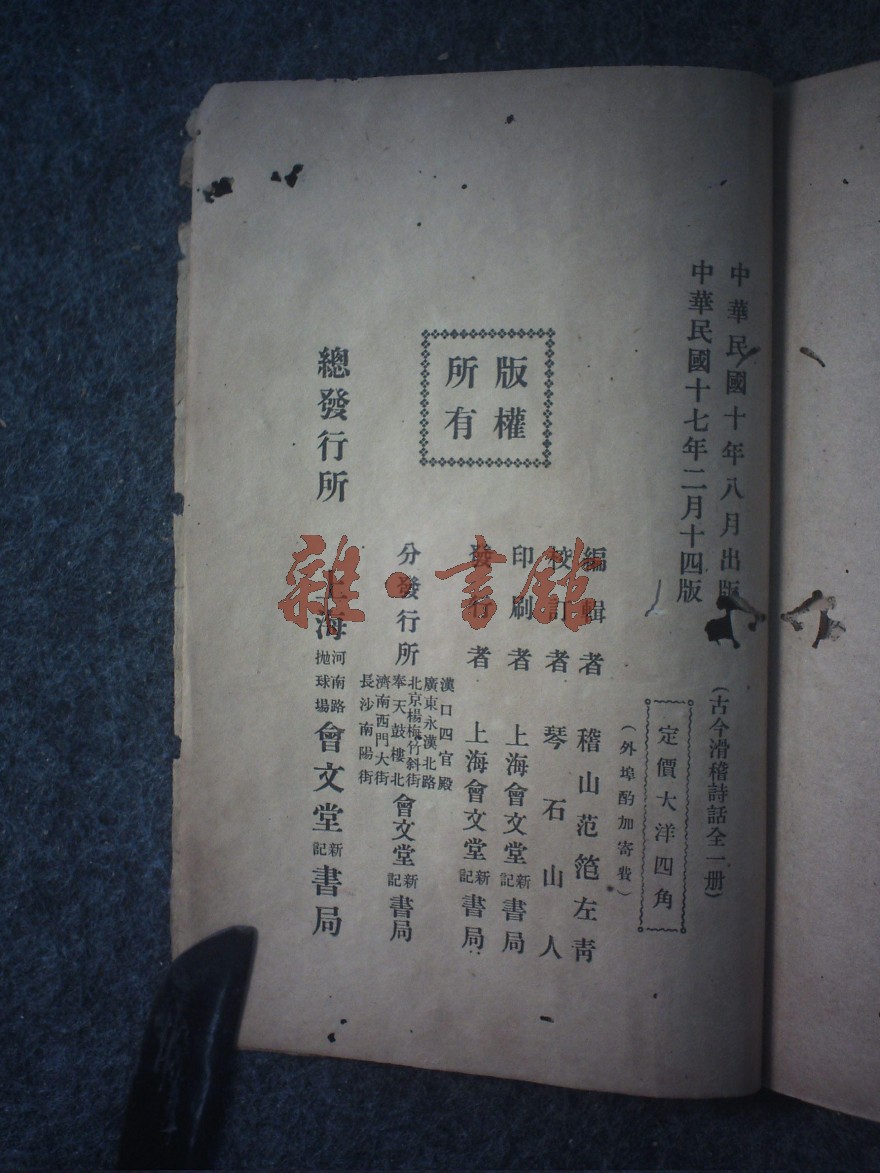 中華民國十年八月出版
中華民國十七年二月十四版
(古今滑稽詩話全一册)
定價大洋四角
(外埠酌加寄費)
編輯者 稽山范笵左靑
校訂者 琴石山人
印刷者 上海會文堂新記書局
發行者 上海會文堂新記書局
版權所有
分發行所
漢口四官殿
廣東永漢北路
北京楊梅竹斜街
奉天鼓樓北
濟南西門大街
長沙南陽街
會文堂新記書局
總發行所 上海河南路抛球場會文堂新記書局
雜·書館